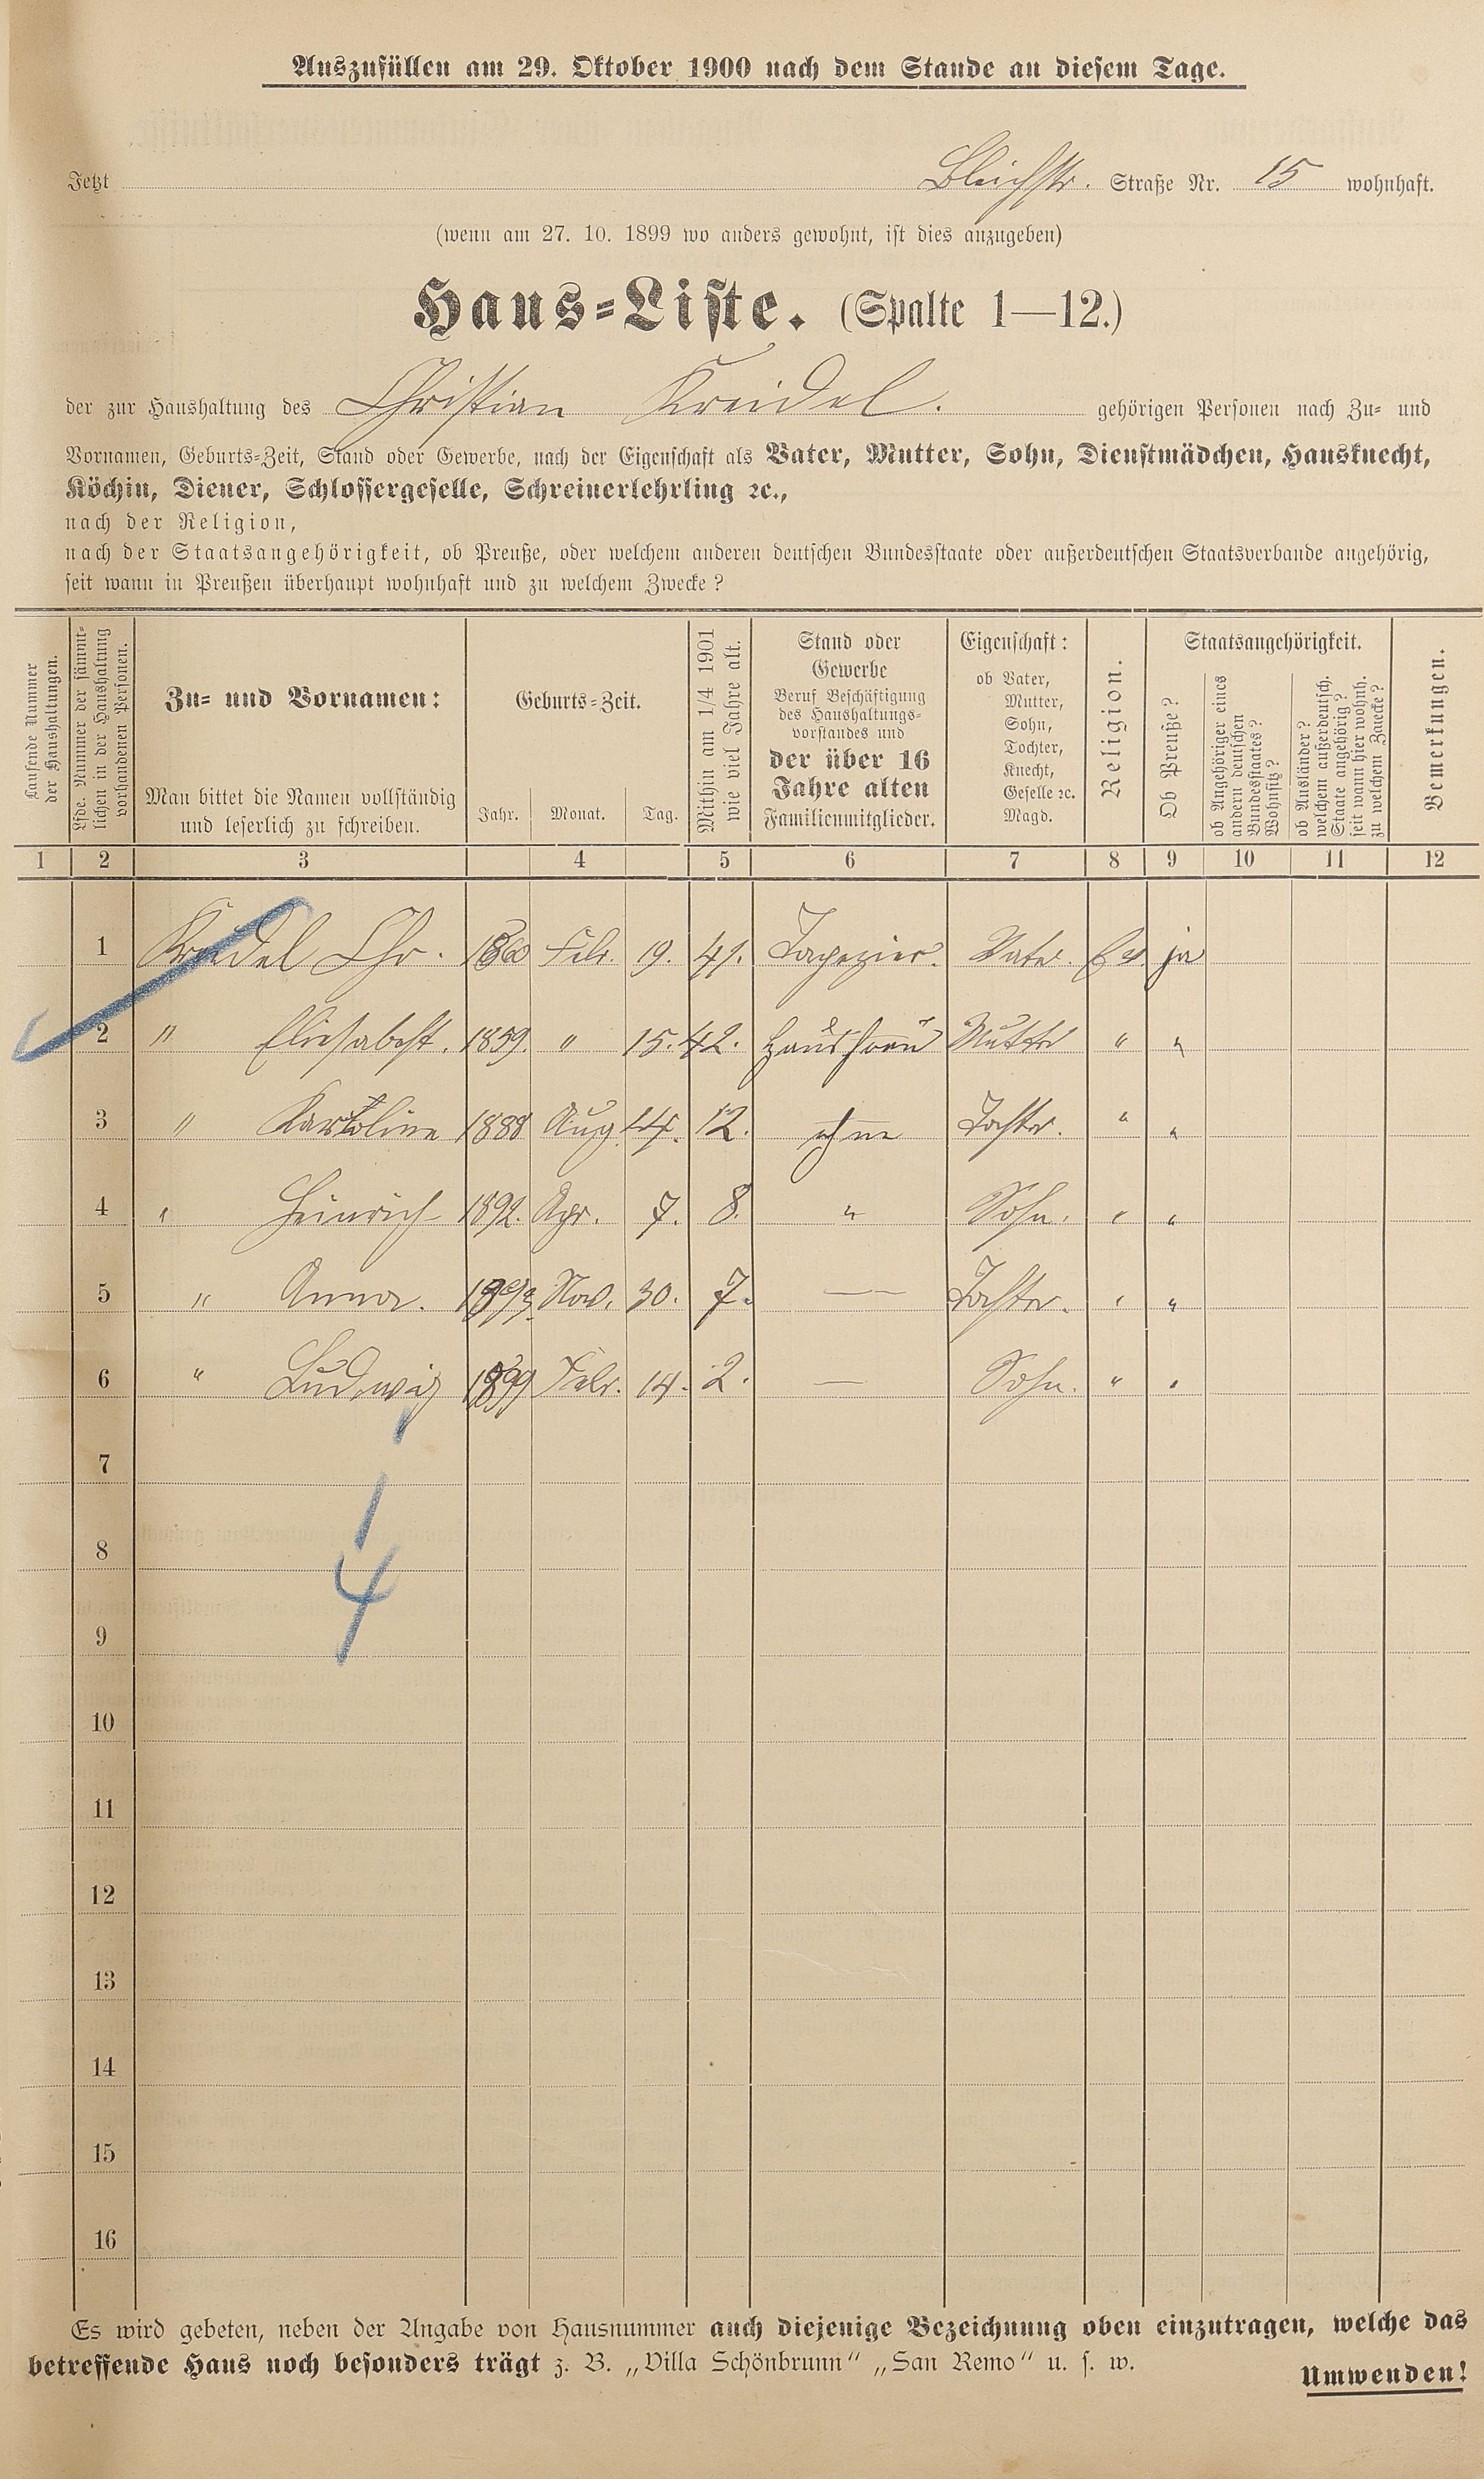 Auszufüllen am 29. Oktober 1900 nach dem Stande an diesem Tage.
Jetzt Bleichstr. Straße Nr. 15 wohnhaft.
(wenn am 27. 10. 1899 wo anders gewohnt, ist dies anzugeben)
Haus-Liste. (Spalte 1—12.)
der zur Haushaltung des Christian Kreidel. gehörigen Personen nach Zu- und
Vornamen, Geburts-Zeit, Stand oder Gewerbe, nach der Eigenschaft als Vater, Mutter, Sohn, Dienstmädchen, Hausknecht,
Köchin, Diener, Schlossergeselle, Schreinerlehrling ꝛc.,
nach der Religion,
nach der Staatsangehörigkeit, ob Preuße, oder welchem anderen deutschen Bundesstaate oder außerdeutschen Staatsverbande angehörig,
seit wann in Preußen überhaupt wohnhaft und zu welchem Zwecke?
Laufende Nummer
der Haushaltungen.
Lfde. Nummer der sämmt-
lichen in der Haushaltung
vorhandenen Personen.
Zu- und Vornamen:
Man bittet die Namen vollständig
und leserlich zu schreiben.
Geburts-Zeit.
Jahr. Monat. Tag.
Mithin am 1/4 1901
wie viel Jahre alt.
Stand oder
Gewerbe
Beruf Beschäftigung
des Haushaltungs-
vorstandes und
der über 16
Jahre alten
Familienmitglieder.
Eigenschaft:
ob Vater,
Mutter,
Sohn,
Tochter,
Knecht,
Geselle ꝛc.
Magd.
Religion.
Staatsangehörigkeit.
Ob Preuße?
ob Angehöriger eines
andern deutschen
Bundesstaates?
Wohnsitz?
ob Ausländer?
welchem außerdeutsch.
Staate angehörig?
seit wann hier wohnh.
zu welchem Zwecke?
Bemerkungen.
1 2 3 4 5 6 7 8 9 10 11 12
1 Kreidel Chr. 1860 Febr. 19. 41. Tapezier. Vater. Ev. ja
2 " Eliesabeht. 1859. " 15. 42. Hausfrau Mutter " "
3 " Karoline 1888 Aug. 14. 12. ohne Tochter. " "
4 " Heinrich 1892. Apr. 7. 8. " Sohn. " "
5 " Anna. 1893. Nov. 30. 7. — Tochter. " "
6 " Ludwig 1899 Febr. 14. 2. — Sohn. " "
7
8
4
9
10
11
12
13
14
15
16
Es wird gebeten, neben der Angabe von Hausnummer auch diejenige Bezeichnung oben einzutragen, welche das
betreffende Haus noch besonders trägt z. B. „Villa Schönbrunn“ „San Remo“ u. s. w.
Umwenden!